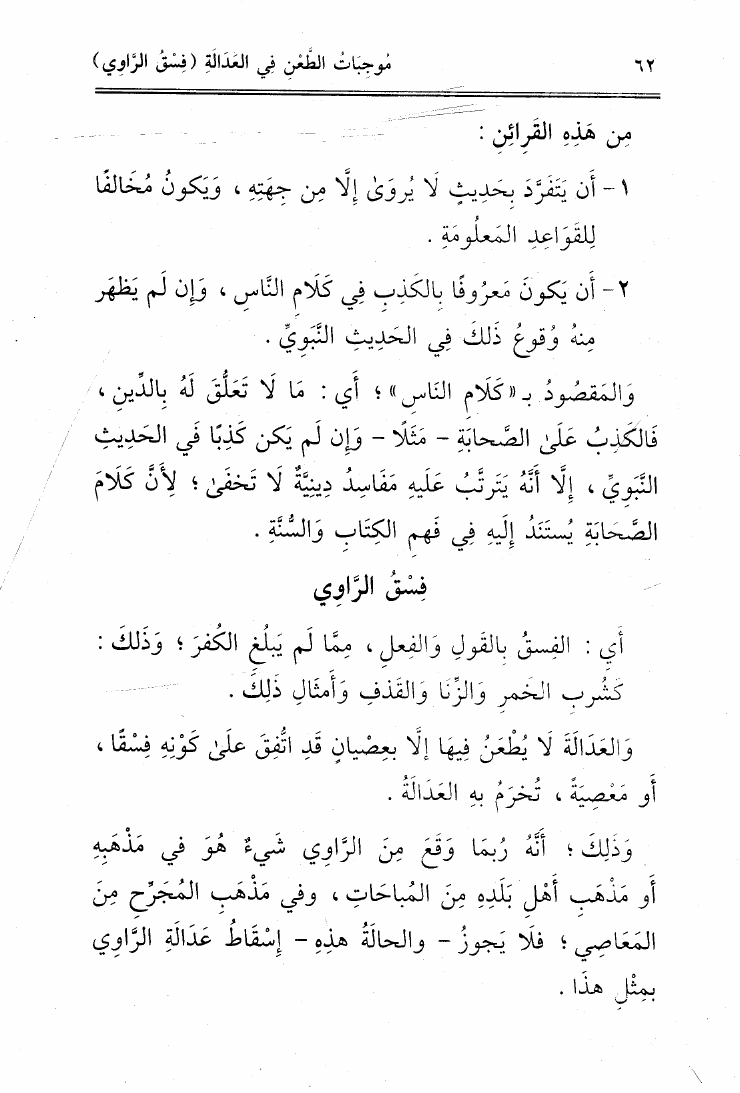 ٦٢ مُوجِبَاتُ الطَّعْنِ فِي العَدَالَةِ (فِسْقُ الرَّاوِي)
مِن هَذِهِ القَرائِنِ :
١- أَن يَتَفَرَّدَ بِحَدِيثٍ لَا يُروَىٰ إِلَّا مِن جِهَتِهِ ، وَيَكُونُ مُخَالفًا
لِلقَوَاعِدِ المَعلُومَةِ .
٢- أَن يَكُونَ مَعرُوفًا بِالكَذِبِ فِي كَلَامِ النَّاسِ ، وَإِن لَم يَظهَر
مِنهُ وُقُوعُ ذَلكَ فِي الحَدِيثِ النَّبَوِيِّ .
وَالمَقصُودُ بـ «كَلَامِ النَاسِ» ؛ أَي : مَا لَا تَعَلُّقَ لَهُ بِالدِّينِ ،
فَالكَذِبُ عَلَىٰ الصَّحابَةِ - مَثَلًا - وَإِن لَم يَكن كَذِبًا في الحَدِيثِ
النَّبوِيِّ ، إِلَّا أَنَّهُ يَتَرتَّبُ عَلَيهِ مَفَاسِدُ دِينِيَّةٌ لَا تَخفَىٰ ؛ لِأَنَّ كَلَامَ
الصَّحَابَةِ يُستَنَدُ إِلَيهِ فِي فَهمِ الكِتَابِ وَالسُّنَّةِ .
فِسْقُ الرَّاوِي
أَي : الفِسقُ بِالقَولِ وَالفِعلِ ، مِمَّا لَم يَبلُغِ الكُفرَ ؛ وَذَلكَ :
كَشُربِ الخَمرِ وَالزِّنَا وَالقَذفِ وَأَمثَالِ ذَلِكَ .
وَالعَدَالَةَ لَا يُطْعَنُ فِيهَا إلَّا بعِصْيانٍ قَدِ اتُّفِقَ علىٰ كَوْنِهِ فِسْقًا ،
أَو مَعْصِيَةً ، تُخرَمُ بهِ العَدَالَةُ .
وَذلِكَ ؛ أَنَّهُ رُبمَا وَقَعَ مِنَ الرَّاوِي شَيءٌ هُوَ في مَذْهَبِهِ
أو مَذْهَبِ أَهْلِ بَلَدِه مِنَ المُباحَاتِ ، وفي مَذْهَبِ المُجَرِّحِ مِنَ
المَعَاصِي ؛ فلَا يَجوزُ - والحالَةُ هذِهِ - إِسْقَاطُ عَدَالَةِ الرَّاوِي
بمِثْلِ هذَا .